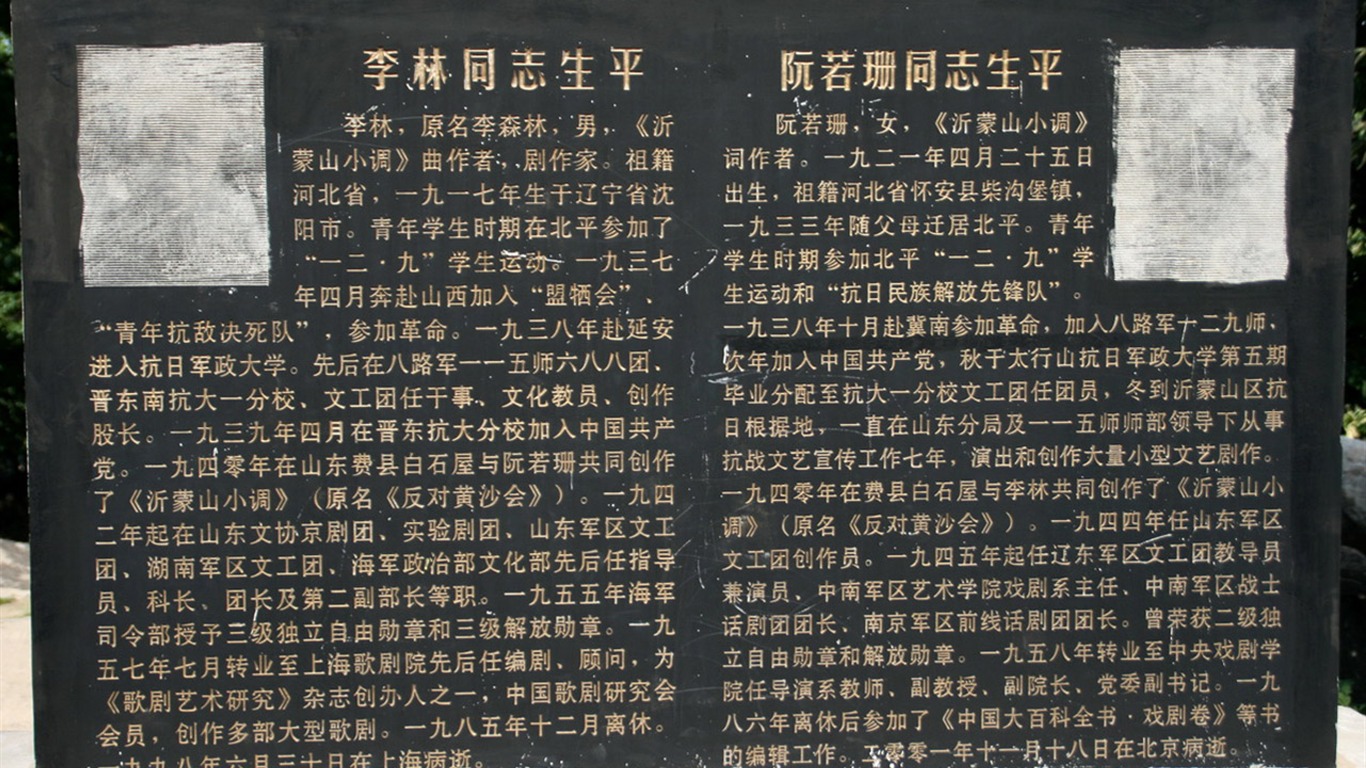 李林同志生平
李林，原名李森林，男，《沂
蒙山小调》曲作者，剧作家。祖籍
河北省，一九一七年生于辽宁省沈
阳市。青年学生时期在北平参加了
“一二·九”学生运动。一九三七
年四月奔赴山西加入“盟牺会”、
“青年抗敌决死队”，参加革命。一九三八年赴延安
进入抗日军政大学。先后在八路军一一五师六八八团、
晋东南抗大一分校、文工团任干事、文化教员、创作
股长。一九三九年四月在晋东抗大分校加入中国共产
党。一九四零年在山东费县白石屋与阮若珊共同创作
了《沂蒙山小调》（原名《反对黄沙会》）。一九四
二年起在山东文协京剧团、实验剧团、山东军区文工
团、湖南军区文工团、海军政治部文化部先后任指导
员、科长、团长及第二副部长等职。一九五五年海军
司令部授予三级独立自由勋章和三级解放勋章。一九
五七年七月转业至上海歌剧院先后任编剧、顾问，为
《歌剧艺术研究》杂志创办人之一，中国歌剧研究会
会员，创作多部大型歌剧。一九八五年十二月离休。
一九九八年六月三十日在上海病逝。
阮若珊同志生平
阮若珊，女，《沂蒙山小调》
词作者。一九二一年四月二十五日
出生，祖籍河北省怀安县柴沟堡镇，
一九三三年随父母迁居北平。青年
学生时期参加北平“一二·九”学
生运动和“抗日民族解放先锋队”。
一九三八年十月赴冀南参加革命，加入八路军一二九师，
次年加入中国共产党，秋于太行山抗日军政大学第五期
毕业分配至抗大一分校文工团任团员，冬到沂蒙山区抗
日根据地，一直在山东分局及一一五师师部领导下从事
抗战文艺宣传工作七年，演出和创作大量小型文艺剧作。
一九四零年在费县白石屋与李林共同创作了《沂蒙山小
调》（原名《反对黄沙会》）。一九四四年任山东军区
文工团创作员。一九四五年起任辽东军区文工团教导员
兼演员、中南军区艺术学院戏剧系主任、中南军区战士
话剧团团长、南京军区前线话剧团团长。曾荣获二级独
立自由勋章和解放勋章。一九五八年转业至中央戏剧学
院任导演系教师、副教授、副院长、党委副书记。一九
八六年离休后参加了《中国大百科全书·戏剧卷》等书
的编辑工作。二零零一年十一月十八日在北京病逝。